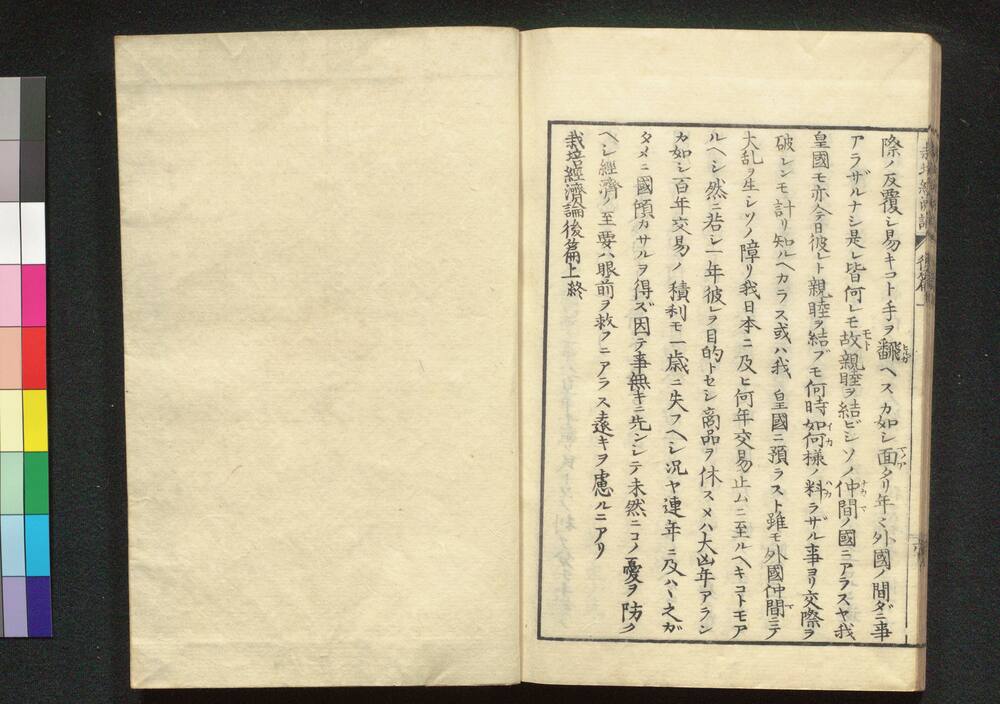 栽培經濟論 後篇一
際ノ反覆シ易キコト手ヲ飜ヘスカ如シ面タリ年々外國ノ間ダニ事
アラザルナシ是レ皆何レモ故親睦ヲ結ビシソノ仲間ノ國ニアラスヤ我
皇國モ亦今日彼レト親睦ヲ結ブモ何時如何樣ノ料ラザル事ヨリ交際ヲ
破レンモ計リ知ルヘカラス或ハ我 皇國ニ預ラスト雖モ外國仲間ニテ
大乱ヲ生シソノ障リ我日本ニ及ヒ何年交易止ムニ至ルヘキコトモア
ルヘシ然ニ若シ一年彼レヲ目的トセシ商品ヲ休スメハ大凶年アラン
カ如シ百年交易ノ積利モ一歳ニ失フヘシ况ヤ連年ニ及ハヽ之ガ
タメニ國傾カサルヲ得ズ因テ事無キニ先ンシテ未然ニコノ憂ヲ防ク
ヘシ經濟ノ至要ハ眼前ヲ救フニアラス遠キヲ慮ルニアリ
栽培經濟論後篇上終